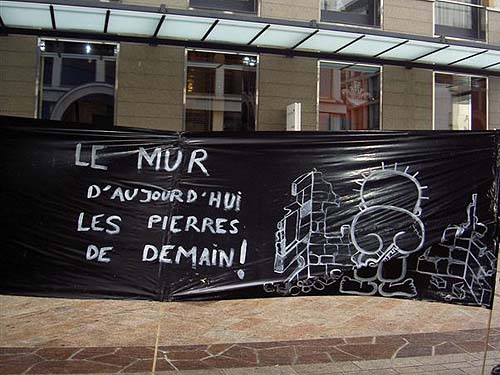 LE MUR
D'AUJOURD'HUI
LES PIERRES
DE DEMAIN!